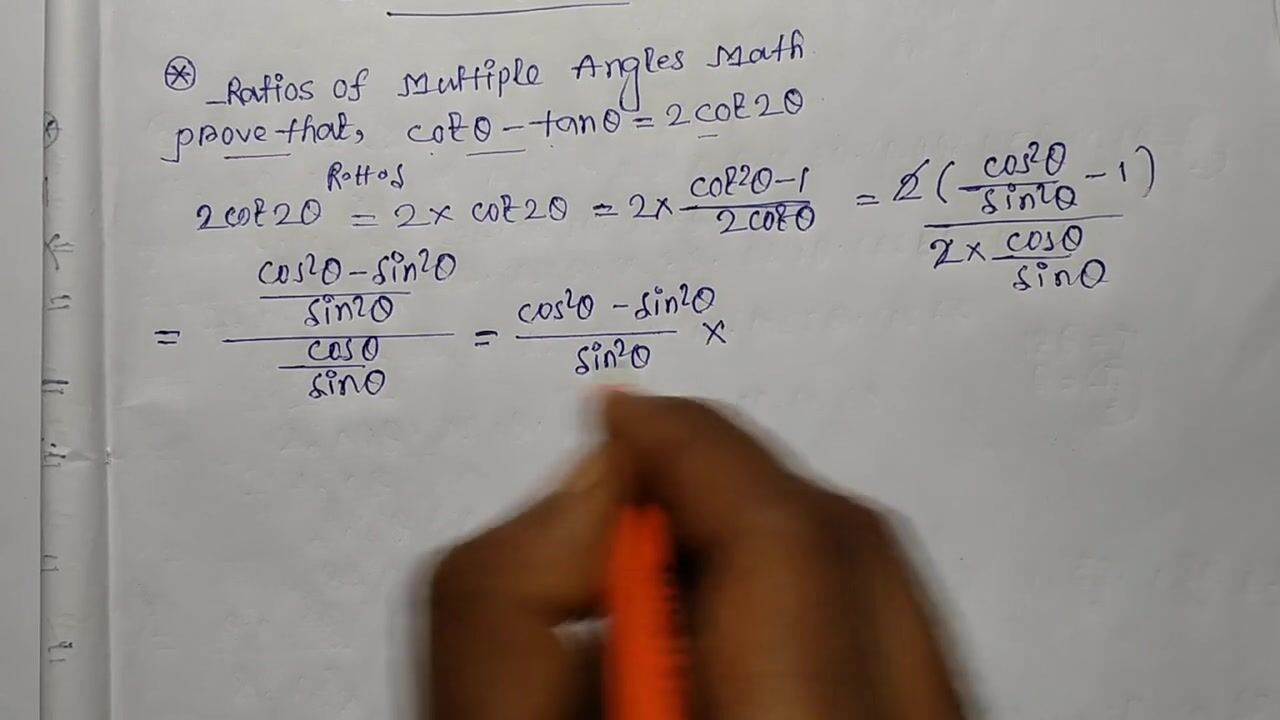 ⊛ Ratios of Multiple Angles Math
prove that, cotθ - tanθ = 2cot2θ
2cot2θ = 2 × cot2θ = 2 × (cot²θ - 1)/(2cotθ) = 2(cos²θ/sin²θ - 1)/(2 × cosθ/sinθ)
= ((cos²θ - sin²θ)/sin²θ)/(cosθ/sinθ) = (cos²θ - sin²θ)/sin²θ ×